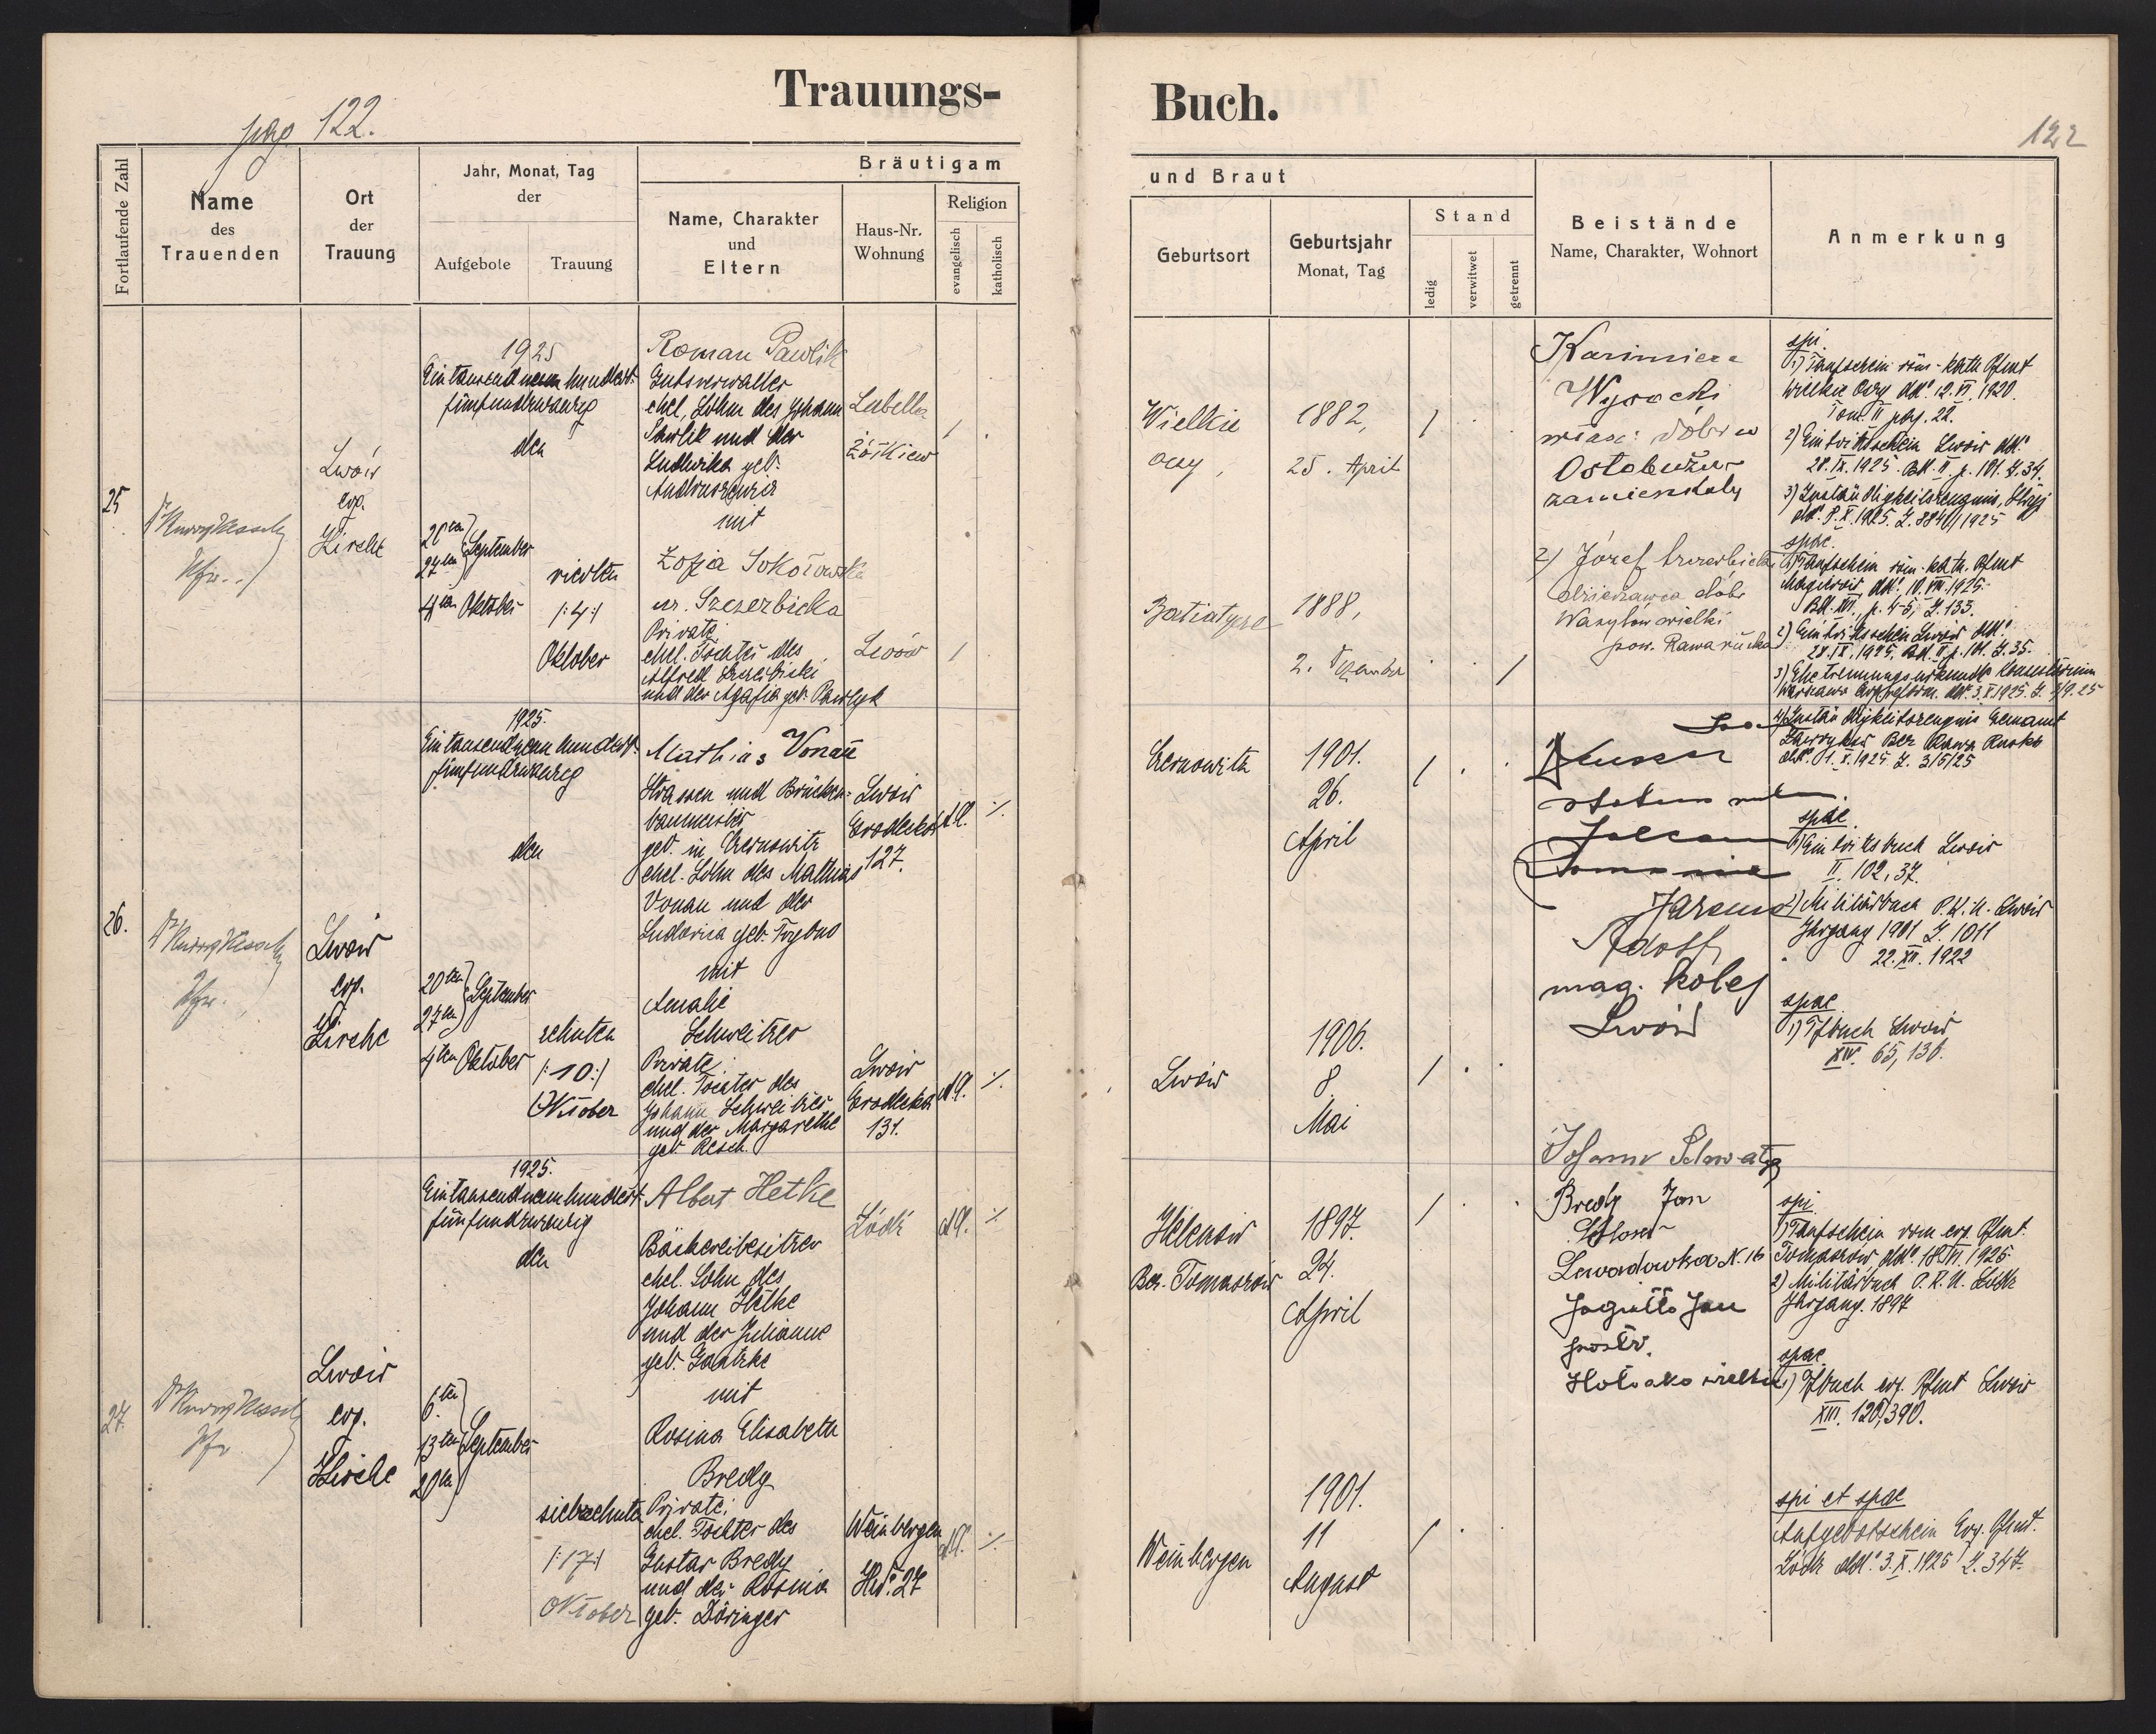 Trauungs-
Buch.
pag. 122.
122
Fortlaufende Zahl
Name
des
Trauenden
Ort
der
Trauung
Jahr, Monat, Tag
der
Aufgebote
Trauung
Bräutigam
Name, Charakter
und
Eltern
Haus-Nr.
Wohnung
Religion
evangelisch
katholisch
und Braut
Geburtsort
Geburtsjahr
Monat, Tag
Stand
ledig
verwitwet
getrennt
Beistände
Name, Charakter, Wohnort
Anmerkung
25
Lwów
ev.
Kirche
1925
Eintausendneunhundert
fünfundzwanzig
den
20ten
27ten September
4ten Oktober
vierten
/:4:/
Oktober
Roman Pawlik
Gutsverwalter
ehel. Sohn des Johann
Pawlik und der
Ludwika geb.
mit
Zofja Sokołowska
ur. Szczerbicka
Private
ehel. Tochter des
Alfred Szczerbicki
und der Agafia geb. Pawlyk
Lubella
Żółkiew
Lwów
Wielkie
oczy,
1882,
25. April
1888,
2. Dezember
Kazimierz
Wysocki
właśc. dóbr w
zamieszkały
2) Józef Szczerbicki
dzierżawca dóbr
Wasylów wielki
pow. Rawa ruska
spi.
1) Taufschein röm-kath Pfmt
Wielkie Oczy ddo. 12. VI. 1920.
Tom. II pag. 22.
2) Eintrittsschein Lwów ddo.
28. IX. 1925. Bd. II. p. 101. Z. 34.
3) Zuständigkeitszeugnis,
1925
spae.
1) Taufschein röm-kath. Pfmt
Magierów, ddo. 10. VIII. 1925.
Bd. XII, p. 4-5, Z. 133.
2) Eintrittsschein Lwów ddo.
28. IX. 1925, Bd. II p. 101. Z. 35.
3) Ehetrennungsurkunde Konsistorium
4) Zuständigkeitszeugnis Gemamt
Bez Rawa Ruska
ddo. 1. X. 1925 Z. 315/25
26.
Lwów
ev.
Kirche
1925.
Eintausendneunhundert
fünfundzwanzig
den
20ten
27ten September
4ten Oktober
zehnten
/:10:/
Oktober
Mathias Vonau
Strassen und Brücken-
baumeister
geb. in Czernowitz
ehel. Sohn des Mathias
Vonau und der
Ludovica geb.
mit
Amalie
Schweitzer
Private;
ehel. Tochter des
Johann Schweitzer
und der Margarethe
geb. Resch.
Lwów
Grodecka
127.
A.C.
Lwów
Grodecka
131.
A.C.
Czernowitz
1901.
26.
April
Lwów
1906.
8.
Mai
Adolf
mag. kolej
Lwów
Johann Schwatz
spae.
1) Eintrittsbuch Lwów
II. 102, 37.
2) Militärbuch P.K.U. Lwów
Jhrgang 1901 Z. 1011
22. XII. 1922
spae
1) Tfbuch Lwów
XIV. 65, 136.
27.
Lwów
ev.
Kirche
1925.
Eintausendneunhundert
fünfundzwanzig
den
6ten
13ten September
20ten
siebzehnten
/:17:/
Oktober
Albert Hetke
Bäckereibesitzer
ehel. Sohn des
Johann Hetke
und der Julianne
geb.
mit
Rosina Elisabeth
Bredy
Private;
ehel. Tochter des
Gustav Bredy
und der Rosina
geb. Döringer
Łódź
A.C.
Weinbergen
HNo. 27
A.C.
Helenów
Bez. Tomaszów
1897.
24.
April
Weinbergen
1901.
11
August
Bredy Jan
Lewandówka N. 16
Jagiełło Jan
spi.
1) Taufschein vom ev. Pfmt.
Tomaszów, ddo. 18. VI. 1925
2) Militärbuch P.K.U. Łódź
Jhrgang. 1897
spae.
1) Tfbuch ev. Pfmt Lwów
XIII. 120, 390.
spi et spae
Aufgebotschein Ev. Pfmt.
Łódź ddo. 3. X. 1925 Z. 347.